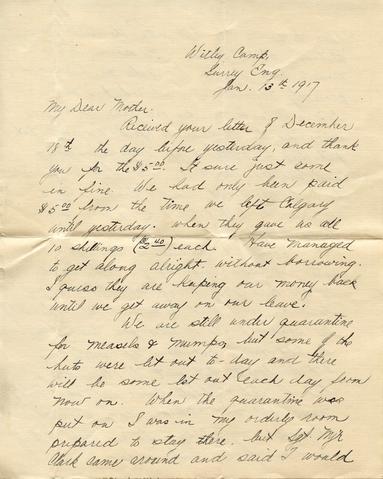 Witley Camp,
Surrey Eng.
Jan. 13th 1917
My Dear Mother.
Recived your letter of December
18th the day before yesterday, and thank
you for the $5.00. It sure just came
in fine. We had only been paid
$5.00 from the time we left Calgary
until yesterday. When they gave us all
10 shillings ($2.40) each. Have managed
to get along alright without borrowing.
I guess they are keeping our money back
until we get away on our leave.
We are still under quarantine
for measels & mumps, but some of the
huts were let out to-day and there
will be some let out each day from
now on. When the quarantine was
put on I was in my orderly room
prepared to stay there. but Sgt. Mjr
Clark came around and said I would